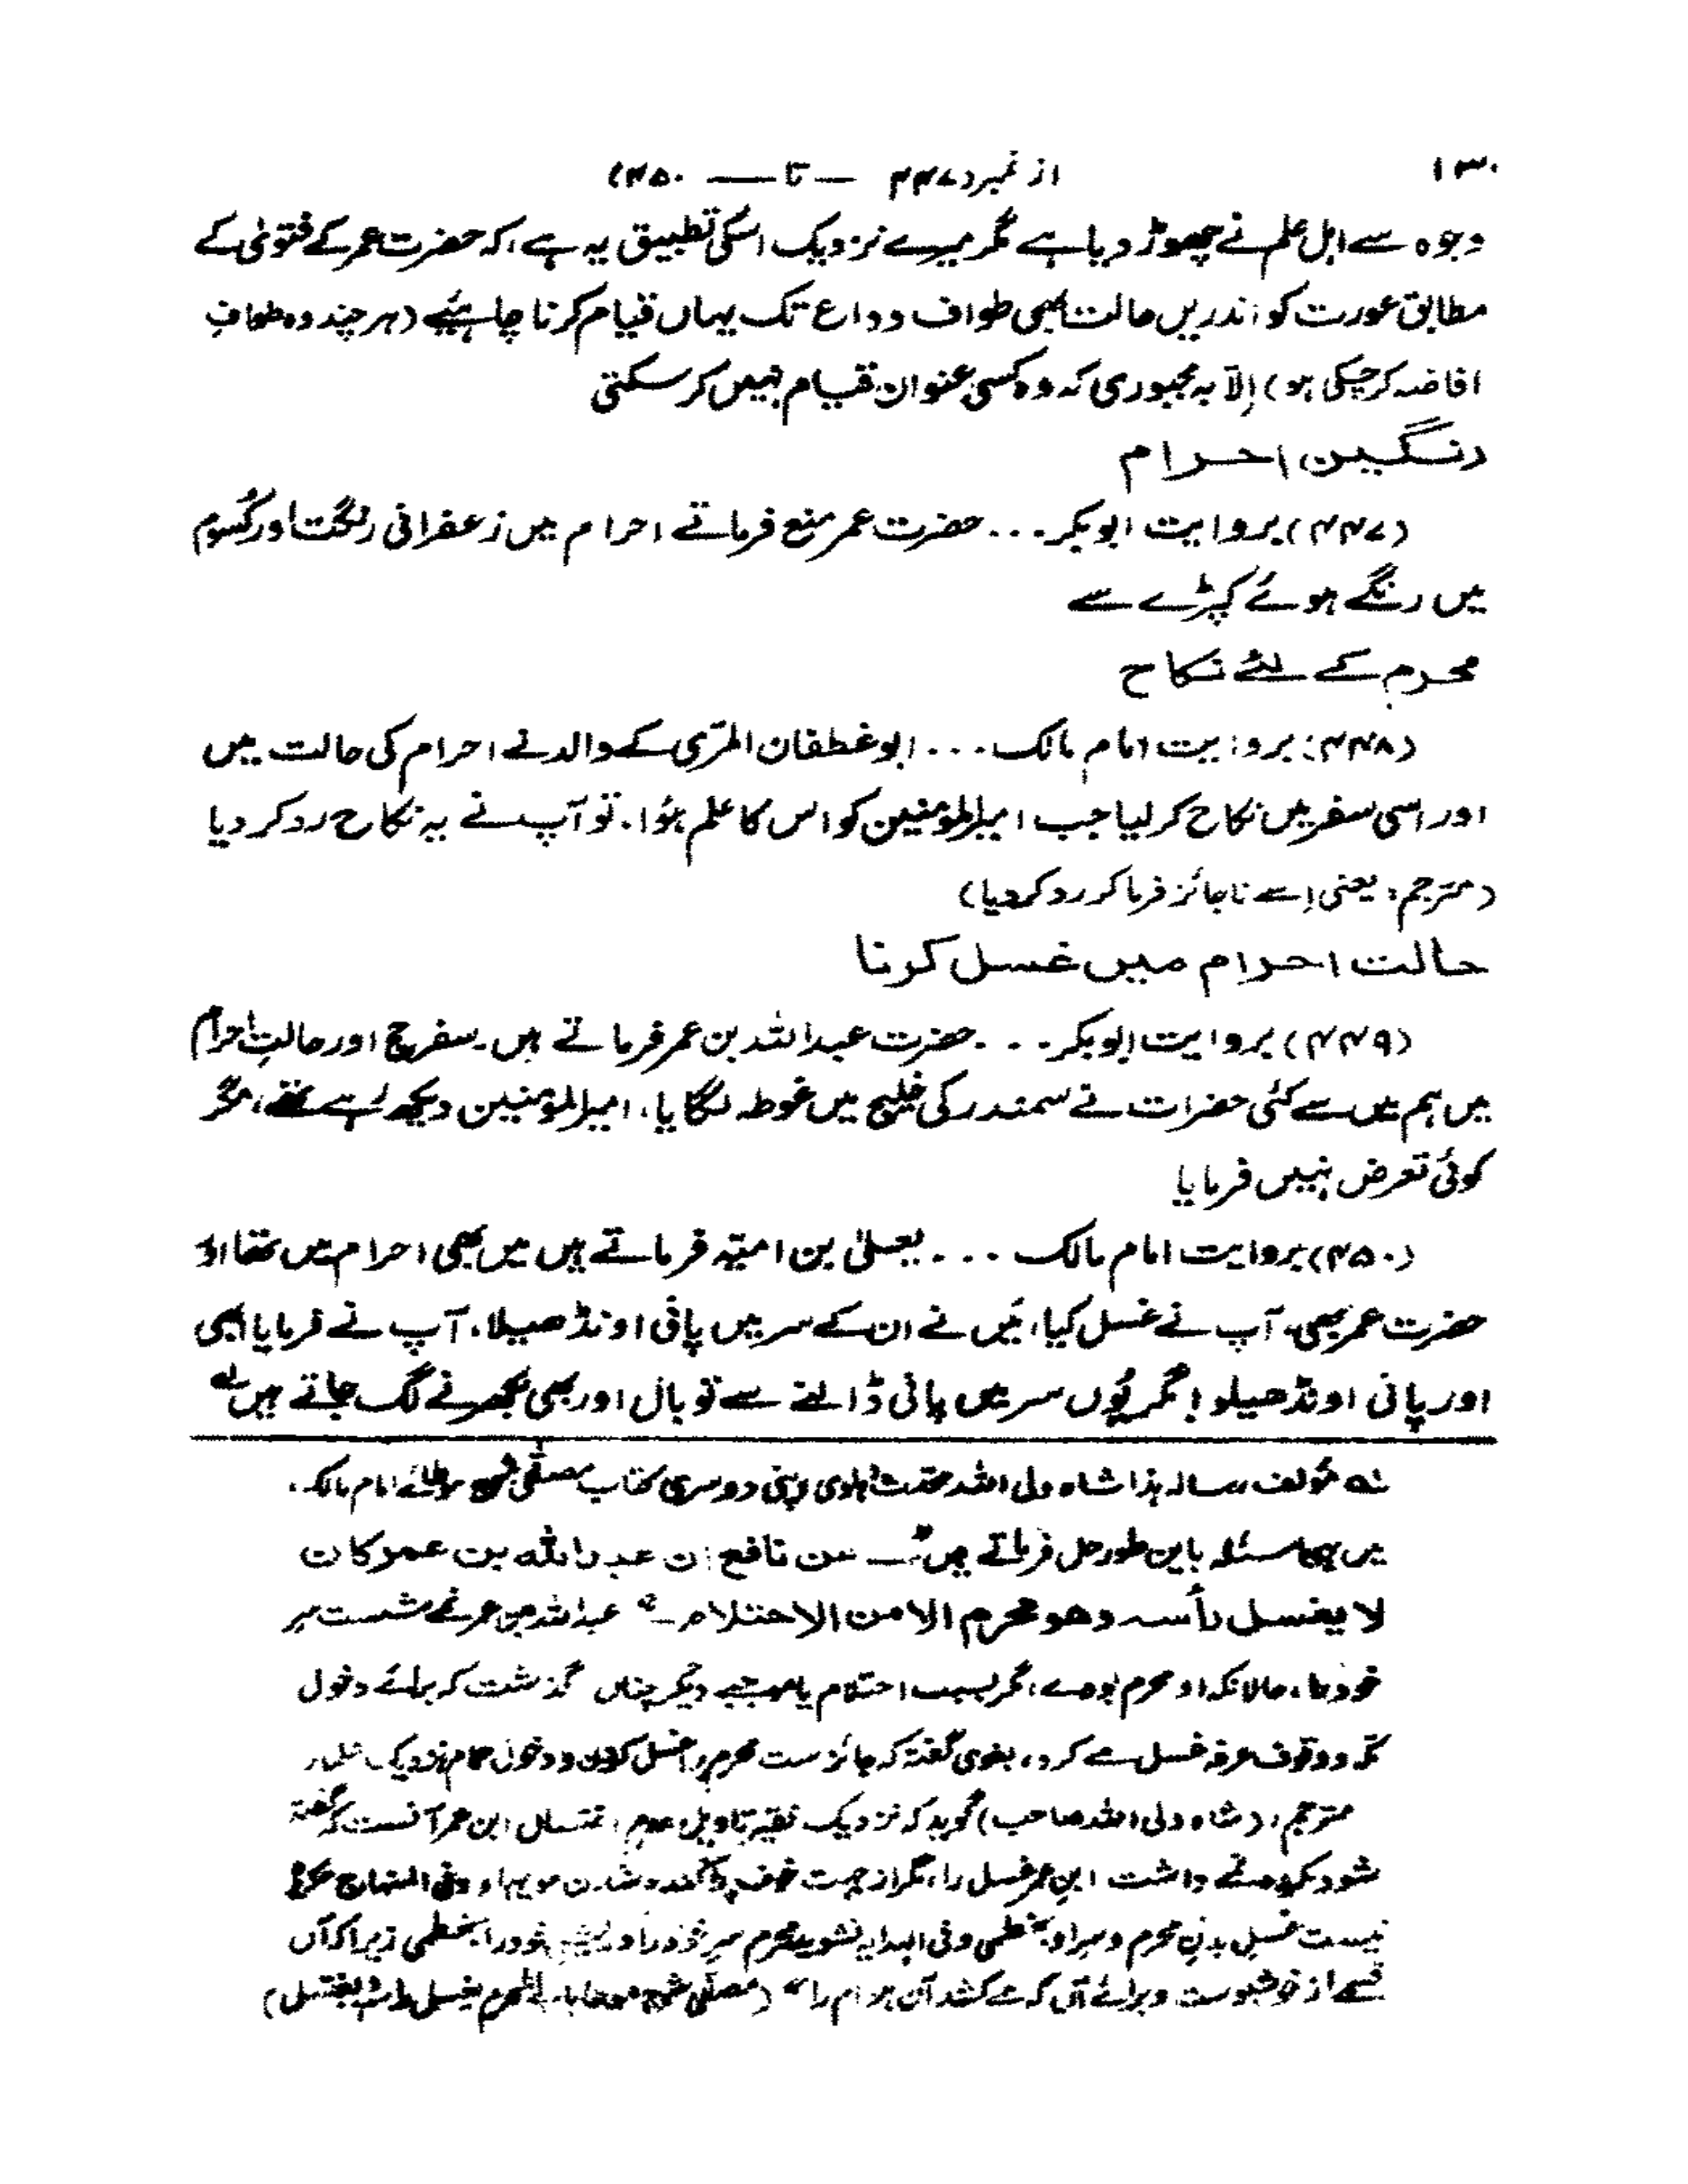 ۱۳۰
از نمبر (۴۴۷ — تا — ۴۵۰)
وجوہ سے اہل علم نے چھوڑ دیا ہے مگر میرے نزدیک اسکی تطبیق یہ ہے، کہ حضرت عمر کے فتویٰ کے
مطابق عورت کو اندریں حالت بھی طواف وداع تک یہاں قیام کرنا چاہیئے (ہر چند وہ طواف
افاضہ کر چکی ہو) اِلّا بہ مجبوری کہ وہ کسی عنوان قیام نہیں کر سکتی
رنگین احرام
(۴۴۷) بروایت ابوبکر ... حضرت عمر منع فرماتے احرام میں زعفرانی رنگت اور کُسوم
میں رنگے ہوئے کپڑے سے
محرم کے لئے نکاح
(۴۴۸) بروایت امام مالک ... ابو غطفان المرّی کے والد نے احرام کی حالت میں
اور اسی سفر میں نکاح کر لیا جب امیرالمؤمنین کو اس کا علم ہؤا۔ تو آپ نے یہ نکاح رد کر دیا
(مترجم: یعنی اِسے ناجائز فرما کر رد کر دیا)
حالت احرام میں غسل کرنا
(۴۴۹) بروایت ابوبکر ... حضرت عبداللہ بن عمر فرماتے ہیں۔ سفر حج اور حالتِ احرام
میں ہم میں سے کئی حضرات نے سمندر کی خلیج میں غوطہ لگایا، امیرالمؤمنین دیکھ رہے تھے، مگر
کوئی تعرض نہیں فرمایا
(۴۵۰) بروایت امام مالک ... یعلیٰ بن امیّہ فرماتے ہیں میں بھی احرام میں تھا اور
حضرت عمر بھی، آپ نے غسل کیا، مَیں نے ان کے سر میں پانی اونڈھیلا، آپ نے فرمایا ابھی
اور پانی اونڈھیلو! مگر یُوں سر میں پانی ڈالنے سے تو بال اور بھی بکھرنے لگ جاتے ہیں لہ
لہ مؤلف رسالہ ہذا شاہ ولی اللہ محدّث دہلوی اپنی دوسری کتاب مصفّٰی شرح موطائے امام مالک
میں یہی مسئلہ باین طور حل فرماتے ہیں عن نافع ان عبداللہ بن عمر کان
لا یغسل رأسہ وھو محرم الا من الاحتلام عبداللہ بن عمر نمے شست سر
خود را، حالانکہ او محرم بودے، مگر بسبب احتلام دیگر چناں گذشت کہ برائے دخول
مکہ و وقوف عرفہ غسل مے کرد، بغوی گفتہ کہ جائز ست محرم را غسل کردن و دخول حمام نزدیک
مترجم: (شاہ ولی اللہ صاحب) گوید کہ نزدیک فقیر تاویل عدم اغتسال ابن عمر آنست کہ گفتہ
شود مکروہ مے داشت ابن عمر غسل را، مگر از جہت خوف پراگندہ شدن مویہا و وفی المنہاج مکروہ
نیست غسل بدن محرم و سر او بخطمی وفی الہدایہ نشوید محرم سر خود را و ریش خود را بخطمی زیراکہ آں
قسمے از خوشبوست و برائے آں کہ مے کشد آن ہوام را (مصفّٰی شرح موطا باب المحرم یغسل